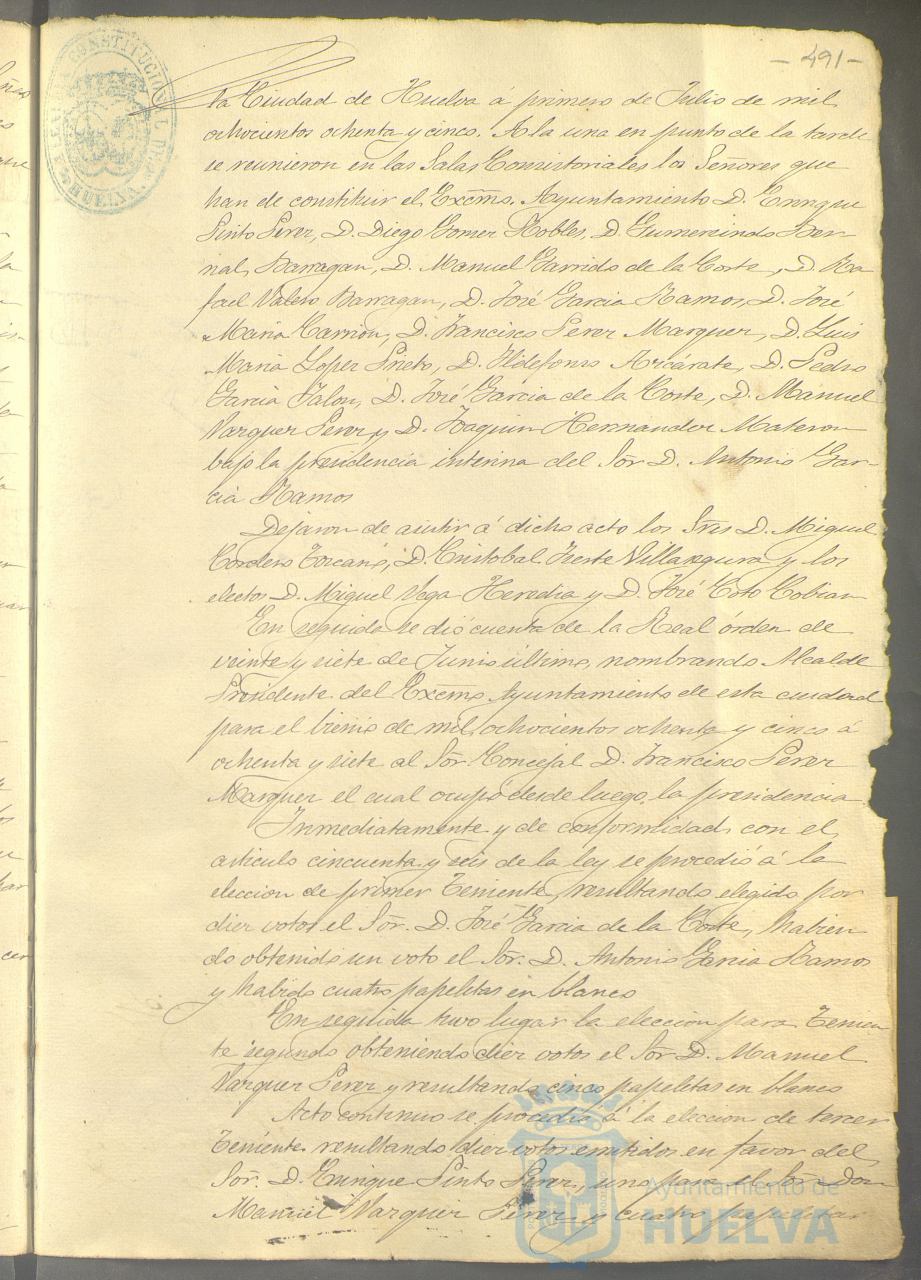 - 491 -
ALCALDIA CONSTITUCIONAL DE HUELVA.
la Ciudad de Huelva á primero de Julio de mil
ochocientos ochenta y cinco. A la una en punto de la tarde
se reunieron en las Salas Consistoriales los Señores que
han de constituir el Excmo. Ayuntamiento D. Enrique
Pinto Perez, D. Diego Gomez Robles, D. Gumersindo Ber
nal Barragan, D. Manuel Garrido de la Corte, D. Ra
fael Valero Barragan, D. José Garcia Ramos, D. José
Maria Carrion, D. Francisco Perez Marquez, D. Luis
Maria Lopez Prieto, D. Ildefonso Azcárate, D. Pedro
Garcia Jalon, D. José Garcia de la Corte, D. Manuel
Vazquez Perez y D. Joaquin Hernandez Materon
bajo la presidencia interina del Sor. D. Antonio Gar-
cia Ramos
Dejaron de asistir á dicho acto los Sres D. Miguel
Cordero D. Cristobal Villasegura y los
electos D. Miguel Vega Heredia y D. José Coto Cobian
En seguida se dió cuenta de la Real órden de
veinte y siete de Junio último, nombrando Alcalde
Presidente del Excmo. Ayuntamiento de esta ciudad
para el bienio de mil ochocientos ochenta y cinco á
ochenta y siete al Sor. Concejal D. Francisco Perez
Marquez el cual ocupó desde luego la presidencia
Inmediatamente y de conformidad con el
articulo cincuenta y seis de la ley se procedió á la
eleccion de primer Teniente, resultando elegido por
diez votos el Sor. D. José Garcia de la Corte, habien
do obtenido un voto el Sor. D. Antonio Garcia Ramos
y habido cuatro papeletas en blanco
En seguida tuvo lugar la eleccion para Tenien
te segundo obteniendo diez votos el Sor. D. Manuel
Vazquez Perez y resultando cinco papeletas en blanco
Acto continuo se procedió á la eleccion de tercer
Teniente resultando diez votos emitidos en favor del
Sor. D. Enrique Pinto Perez, uno para el Sor. Don
Manuel Vazquez Perez y cuatro papeletas
Ayuntamiento de
HUELVA